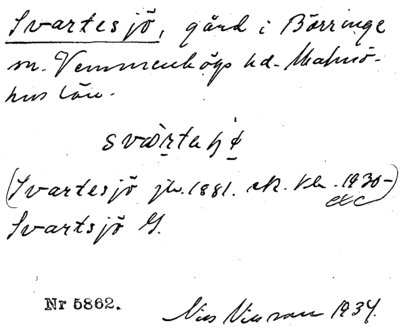 Svartesjö, gård i Börringe
sn. Vemmenhögs hd. Malmö-
hus län.
(Svartesjö jb. 1881. ek. kb. 1930-)
etc
Svartsjö G.
Nr 5862.
Nils 1934.